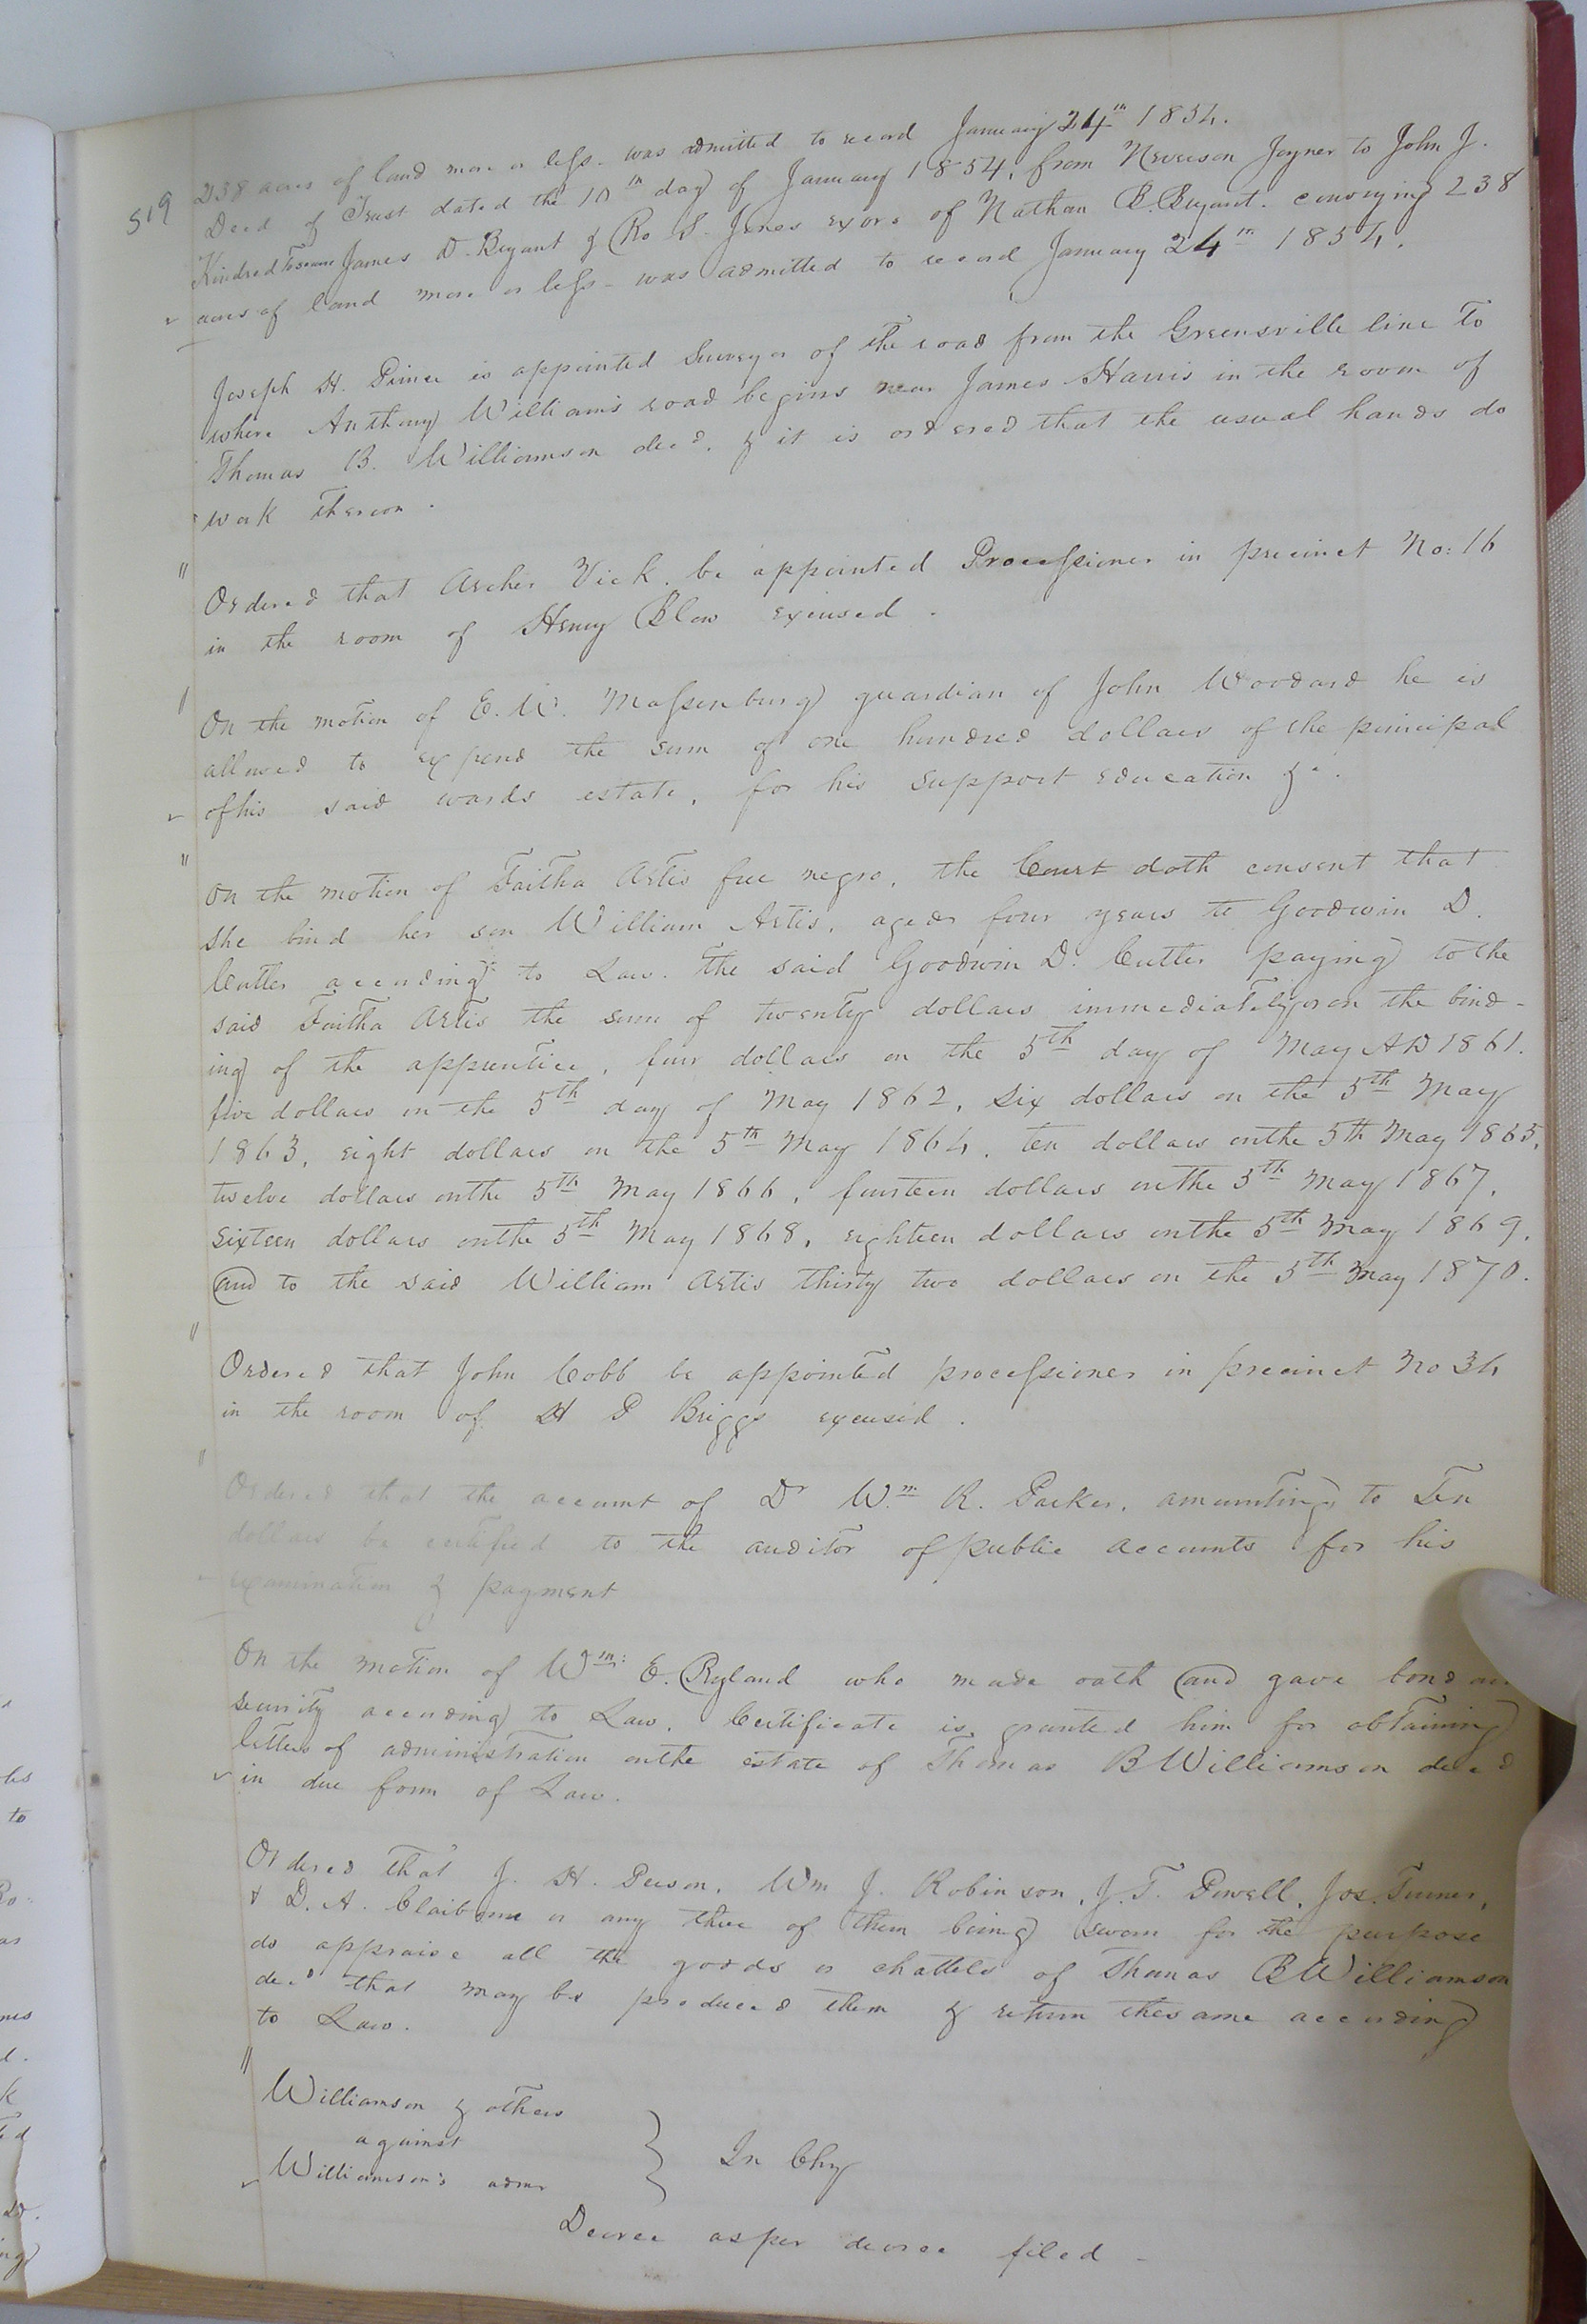 519
238 acres of land more or less - was admitted to record January 24th 1854.
Deed of Trust dated the 10th day of January 1854, from Neverson Joyner to John J.
Kindred To secure James D. Bryant & Ro S. Jones exors of Nathan B. Bryant. conveying 238
acres of land more or less - was admitted to record January 24th 1854.
Joseph H. Prince is appointed Surveyor of the road from the Greensville line to
where Anthony Williams road begins near James Harris in the room of
Thomas B. Williamson decd. & it is ordered that the usual hands do
work thereon.
"
Ordered that Archer Vick. be appointed Processioner in precinct No: 16
in the room of Henry Blow excused.
On the motion of E. W. Massenburg guardian of John Woodard he is
allowed to expend the sum of one hundred dollars of the principal
of his said wards estate, for his support education &c.
"
On the motion of Faitha Artis free negro, the Court doth consent that
she bind her son William Artis, aged four years to Goodwin D.
Cutler according to Law. The said Goodwin D. Cutler paying to the
said Faitha Artis the sum of twenty dollars immediately on the bind-
ing of the apprentice, four dollars on the 5th day of May AD 1861.
five dollars on the 5th day of May 1862, Six dollars on the 5th May
1863, eight dollars on the 5th May 1864, ten dollars on the 5th May 1865,
twelve dollars on the 5th May 1866, fourteen dollars on the 5th May 1867,
sixteen dollars on the 5th May 1868, eighteen dollars on the 5th May 1869,
and to the said William Artis thirty two dollars on the 5th May 1870.
"
Ordered that John Cobb be appointed processioner in precinct No 34
in the room of H P Briggs excused.
"
Ordered that the account of Dr Wm R. Parker, amounting to Ten
dollars be certified to the auditor of public accounts for his
examination & payment
On the motion of Wm: E. Ryland who made oath and gave bond
security according to Law. Certificate is granted him for obtaining
letters of administration on the estate of Thomas B Williamson decd
in due form of Law.
Ordered that J. H. Person, Wm J. Robinson, J. T. Powell, Jos. Turner,
& D. A. Claiborne or any three of them being sworn for the purpose
do appraise all the goods or chattels of Thomas B Williamson
decd that may be produced them & return the same according
to Law.
"
Williamson & others
against
Williamson's admr
} In Chy
Decree as per decree filed -